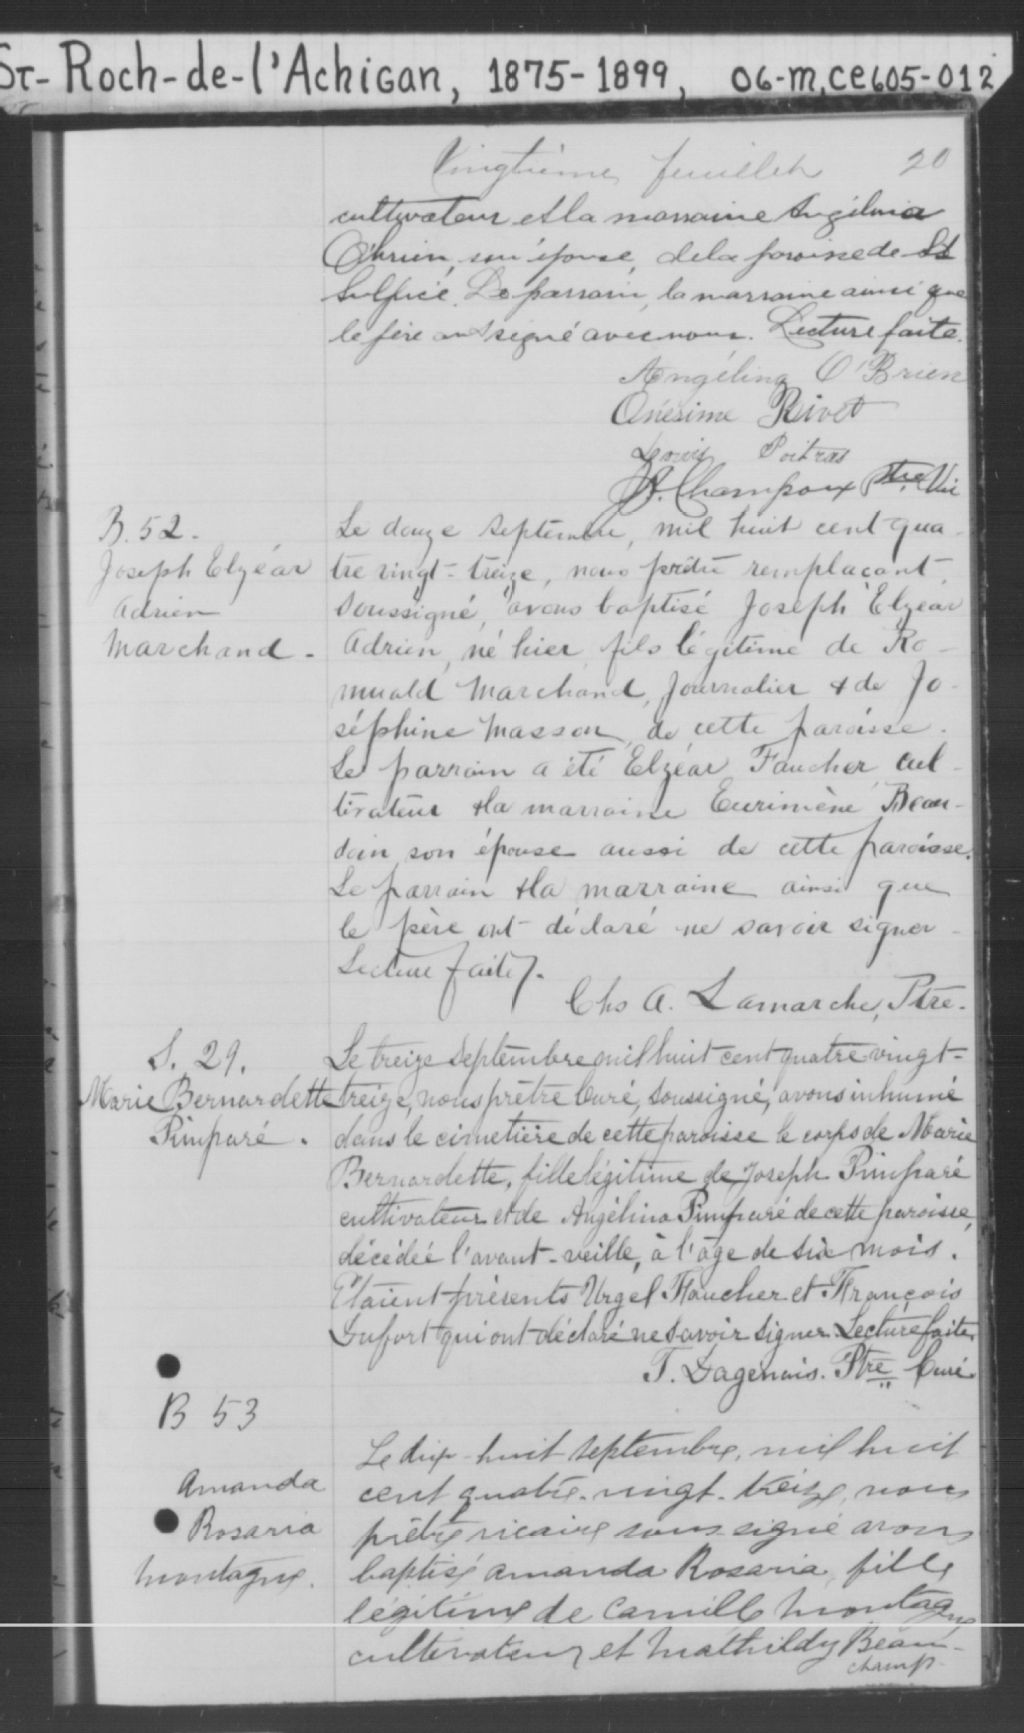 St-Roch-de-l'Achigan, 1875-1899, 06-M,CE605-012
Vingtième feuillet 20
cultivateur et la marraine Angélina
O'brien, son épouse, de la paroisse de St
Sulpice. Le parrain, la marraine ainsi que
le père ont signé avec nous. Lecture faite.
Angélina O'Brien
Onésime Rivet
Louis Poitras
Champoux Ptre Vic
B. 52.
Joseph Elzéar
Adrien
Marchand.
Le douze septembre, mil huit cent qua-
tre vingt-treize, nous prêtre remplaçant,
soussigné, avons baptisé Joseph Elzear
Adrien, né hier, fils légitime de Ro-
muald Marchand, journalier & de Jo-
séphine Masson, de cette paroisse.
Le parrain a été Elzéar Faucher, cul-
tivateur & la marraine Eurimène Beau-
doin son épouse aussi de cette paroisse.
Le parrain & la marraine ainsi que
le père ont déclaré ne savoir signer
Lecture faite.
Chs A. Lamarche, Ptre.
S. 29.
Marie Bernardette
Pimparé.
Le treize Septembre mil huit cent quatre vingt-
treize, nous prêtre Curé, soussigné, avons inhumé
dans le cimetière de cette paroisse le corps de Marie
Bernardette, fille légitime de Joseph Pimparé
cultivateur et de Angélina Pimparé de cette paroisse,
décédée l'avant-veille, à l'âge de six mois.
Etaient présents Urgel Faucher et François
Dufort qui ont déclaré ne savoir signer. Lecture faite.
T. Dagenais. Ptre Curé.
B 53
Amanda
Rosaria
Montagne.
Le dix-huit septembre, mil huit
cent quatre-vingt-treize, nous
prêtre vicaire soussigné avons
baptisé Amanda Rosaria, fille
légitime de Camille Montagne
cultivateur et Mathilde Beau-
champ